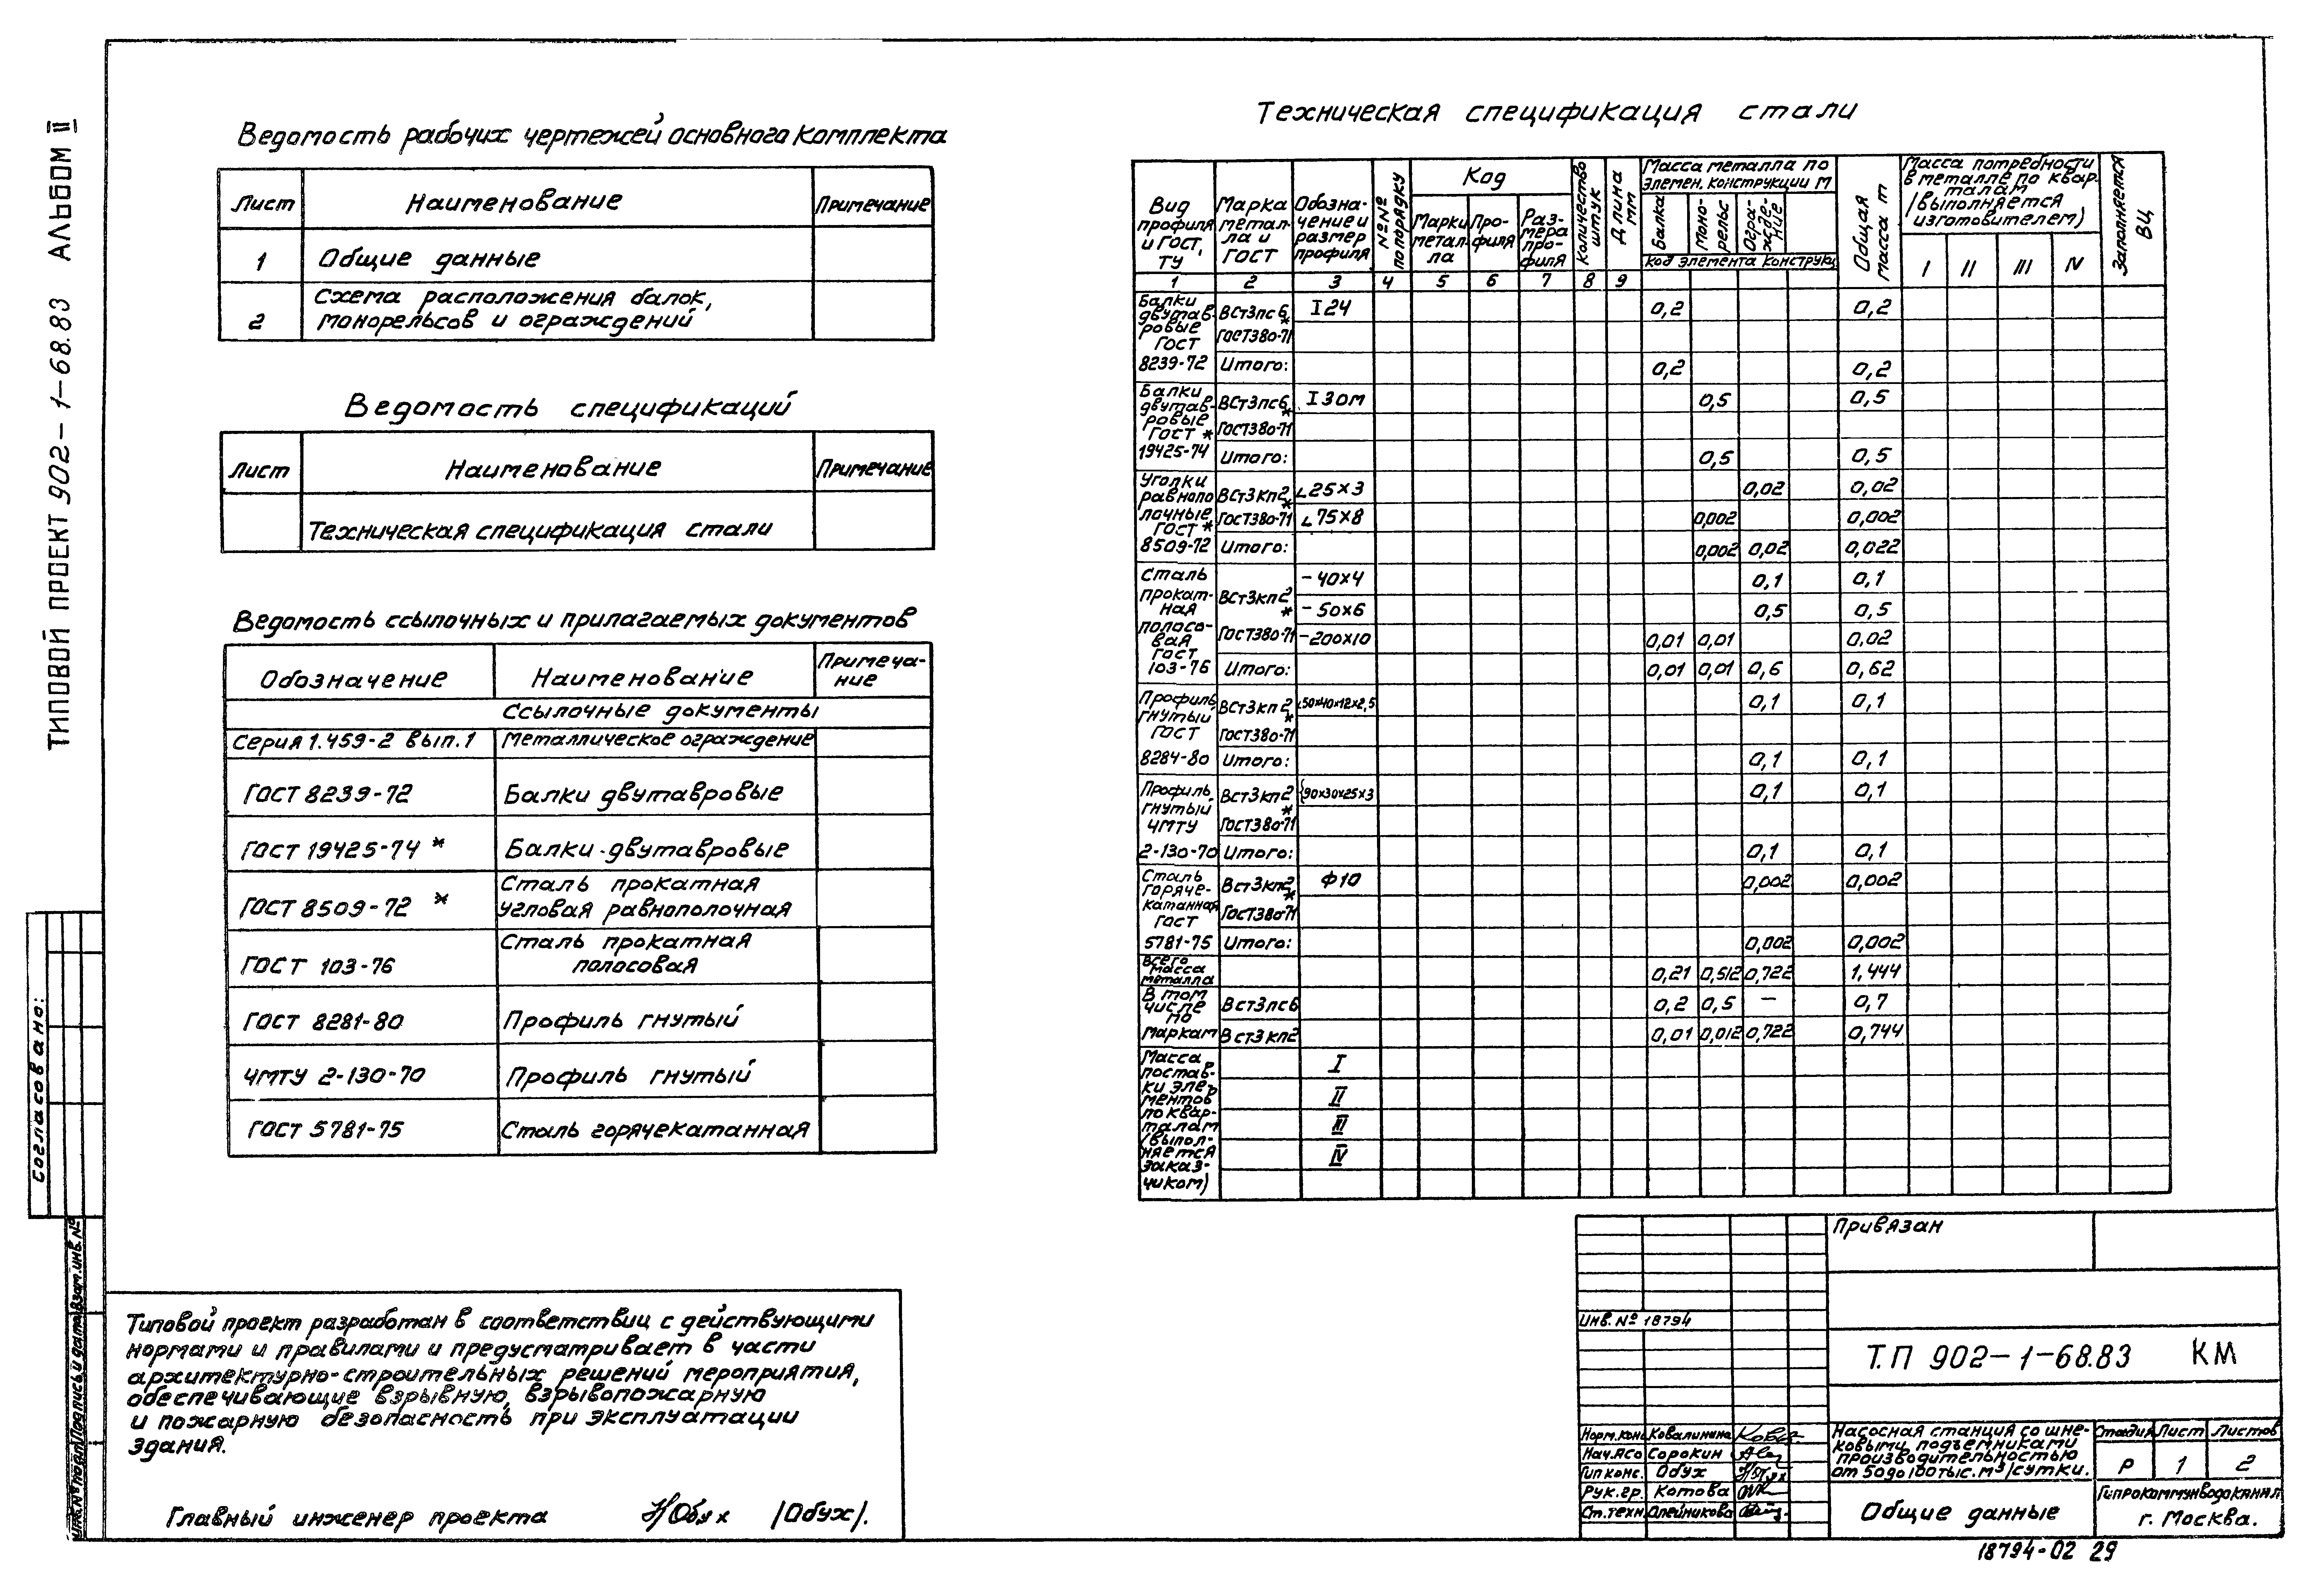 ТИПОВОЙ ПРОЕКТ 902-1-68.83 АЛЬБОМ II
Ведомость рабочих чертежей основного комплекта
Лист Наименование Примечание
1 Общие данные
2 Схема расположения балок,
монорельсов и ограждений
Ведомость спецификаций
Лист Наименование Примечание
Техническая спецификация стали
Ведомость ссылочных и прилагаемых документов
Обозначение Наименование Примеча-
ние
Ссылочные документы
Серия 1.459-2 вып.1 Металлическое ограждение
ГОСТ 8239-72 Балки двутавровые
ГОСТ 19425-74 * Балки двутавровые
ГОСТ 8509-72 * Сталь прокатная
угловая равнополочная
ГОСТ 103-76 Сталь прокатная
полосовая
ГОСТ 8281-80 Профиль гнутый
ЧМТУ 2-130-70 Профиль гнутый
ГОСТ 5781-75 Сталь горячекатанная
Типовой проект разработан в соответствии с действующими
нормами и правилами и предусматривает в части
архитектурно-строительных решений мероприятия,
обеспечивающие взрывную, взрывопожарную
и пожарную безопасность при эксплуатации
здания.
Главный инженер проекта НОбух /Обух/.
Согласовано:
Инв.№подл Подпись и дата Взам.инв.№
Техническая спецификация стали
Вид
профиля
и ГОСТ,
ТУ
Марка
метал-
ла и
ГОСТ
Обозна-
чение и
размер
профиля
№№
по порядку
Код
Марки
метал-
ла
Про-
филя
Раз-
мера
про-
филя
Количество
штук
Длина
мм
Масса металла по
элемен. конструкции м
Балка
Моно-
рельс
Огра-
жде-
ние
Код элемента конструкц
Общая
масса т
Масса потребности
в металле по квар.
талам
(выполняется
изготовителем)
I II III IV
Заполняется
ВЦ
1 2 3 4 5 6 7 8 9
Балки
двутав-
ровые
ГОСТ
8239-72
ВСт3пс6 * I24 0,2 0,2
ГОСТ380-71
Итого: 0,2 0,2
Балки
двутав-
ровые
ГОСТ *
19425-74
ВСт3пс6 * I30М 0,5 0,5
ГОСТ380-71
Итого: 0,5 0,5
Уголки
равнопо
лочные
ГОСТ *
8509-72
ВСт3кп2 * ∟25×3 0,02 0,02
ГОСТ380-71 ∟75×8 0,002 0,002
Итого: 0,002 0,02 0,022
Сталь
прокат-
ная
полосо-
вая
ГОСТ
103-76
-40×4 0,1 0,1
ВСт3кп2 * -50×6 0,5 0,5
ГОСТ380-71 -200×10 0,01 0,01 0,02
Итого: 0,01 0,01 0,6 0,62
Профиль
гнутый
ГОСТ
8284-80
ВСт3кп2 * 50×40×12×2,5 0,1 0,1
ГОСТ380-71
Итого: 0,1 0,1
Профиль
гнутый
ЧМТУ
2-130-70
ВСт3кп2 * {90×30×25×3 0,1 0,1
ГОСТ380-71
Итого: 0,1 0,1
Сталь
горяче-
катанная
ГОСТ
5781-75
ВСт3кп2 * Ф10 0,002 0,002
ГОСТ380-71
Итого: 0,002 0,002
Всего
масса
металла
0,21 0,512 0,722 1,444
В том
числе
по
маркам
ВСт3пс6 0,2 0,5 — 0,7
ВСт3кп2 0,01 0,012 0,722 0,744
Масса
постав-
ки эле-
ментов
по квар-
талам
(выпол-
няется
заказ-
чиком)
I
II
III
IV
Привязан
Инв. № 18794
Т.П 902-1-68.83 КМ
Норм.конс Ковалинина
Нач.АСО Сорокин
Гип конс. Обух
Рук.гр. Котова
Ст.техн Олейникова
Насосная станция со шне-
ковыми подъемниками
производительностью
от 50 до 100 тыс. м³/сутки.
Стадия Лист Листов
Р 1 2
Общие данные
Гипрокоммунводоканал
г. Москва.
18794-02 29